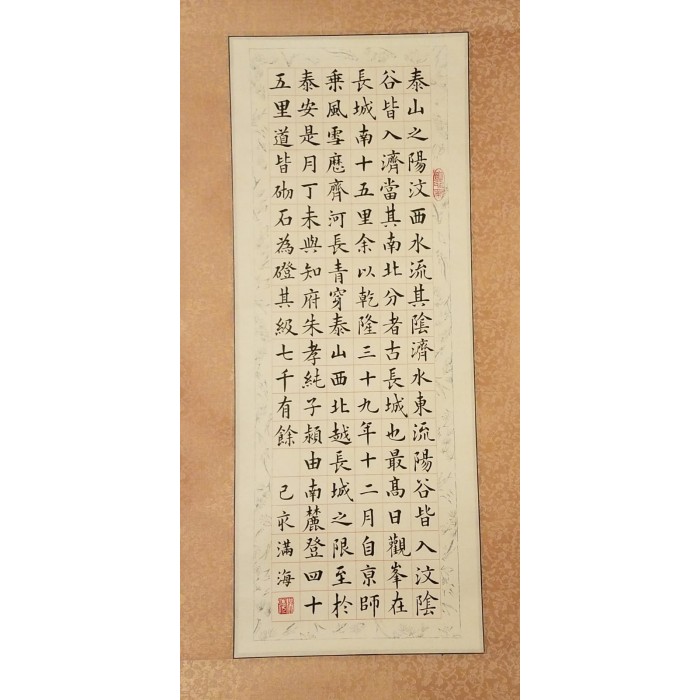 泰山之陽汶西水流其陰濟水東流陽谷皆入汶陰
谷皆入濟當其南北分者古長城也最高日觀峯在
長城南十五里余以乾隆三十九年十二月自京師
乗風雪歷齊河長青穿泰山西北越長城之限至於
泰安是月丁未與知府朱孝純子潁由南麓登四十
五里道皆砌石為磴其級七千有餘 己亥滿海